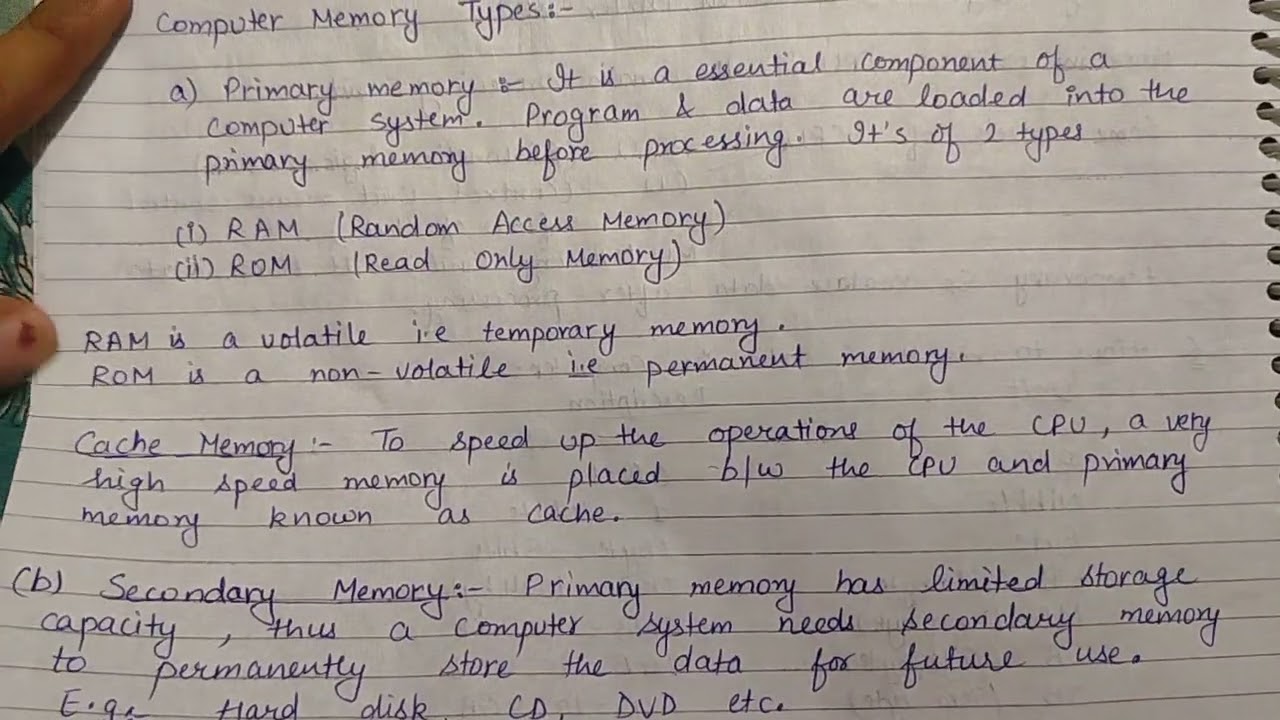 Computer Memory Types:-
a) Primary memory :- It is a essential component of a
computer system. Program & data are loaded into the
primary memory before processing. It's of 2 types
(i) RAM (Random Access Memory)
(ii) ROM (Read Only Memory)
RAM is a volatile i.e temporary memory.
ROM is a non-volatile i.e permanent memory.
Cache Memory :- To speed up the operations of the CPU, a very
high speed memory is placed b/w the CPU and primary
memory known as cache.
(b) Secondary Memory:- Primary memory has limited storage
capacity, thus a computer system needs secondary memory
to permanently store the data for future use.
E.g:- Hard disk, CD, DVD etc.